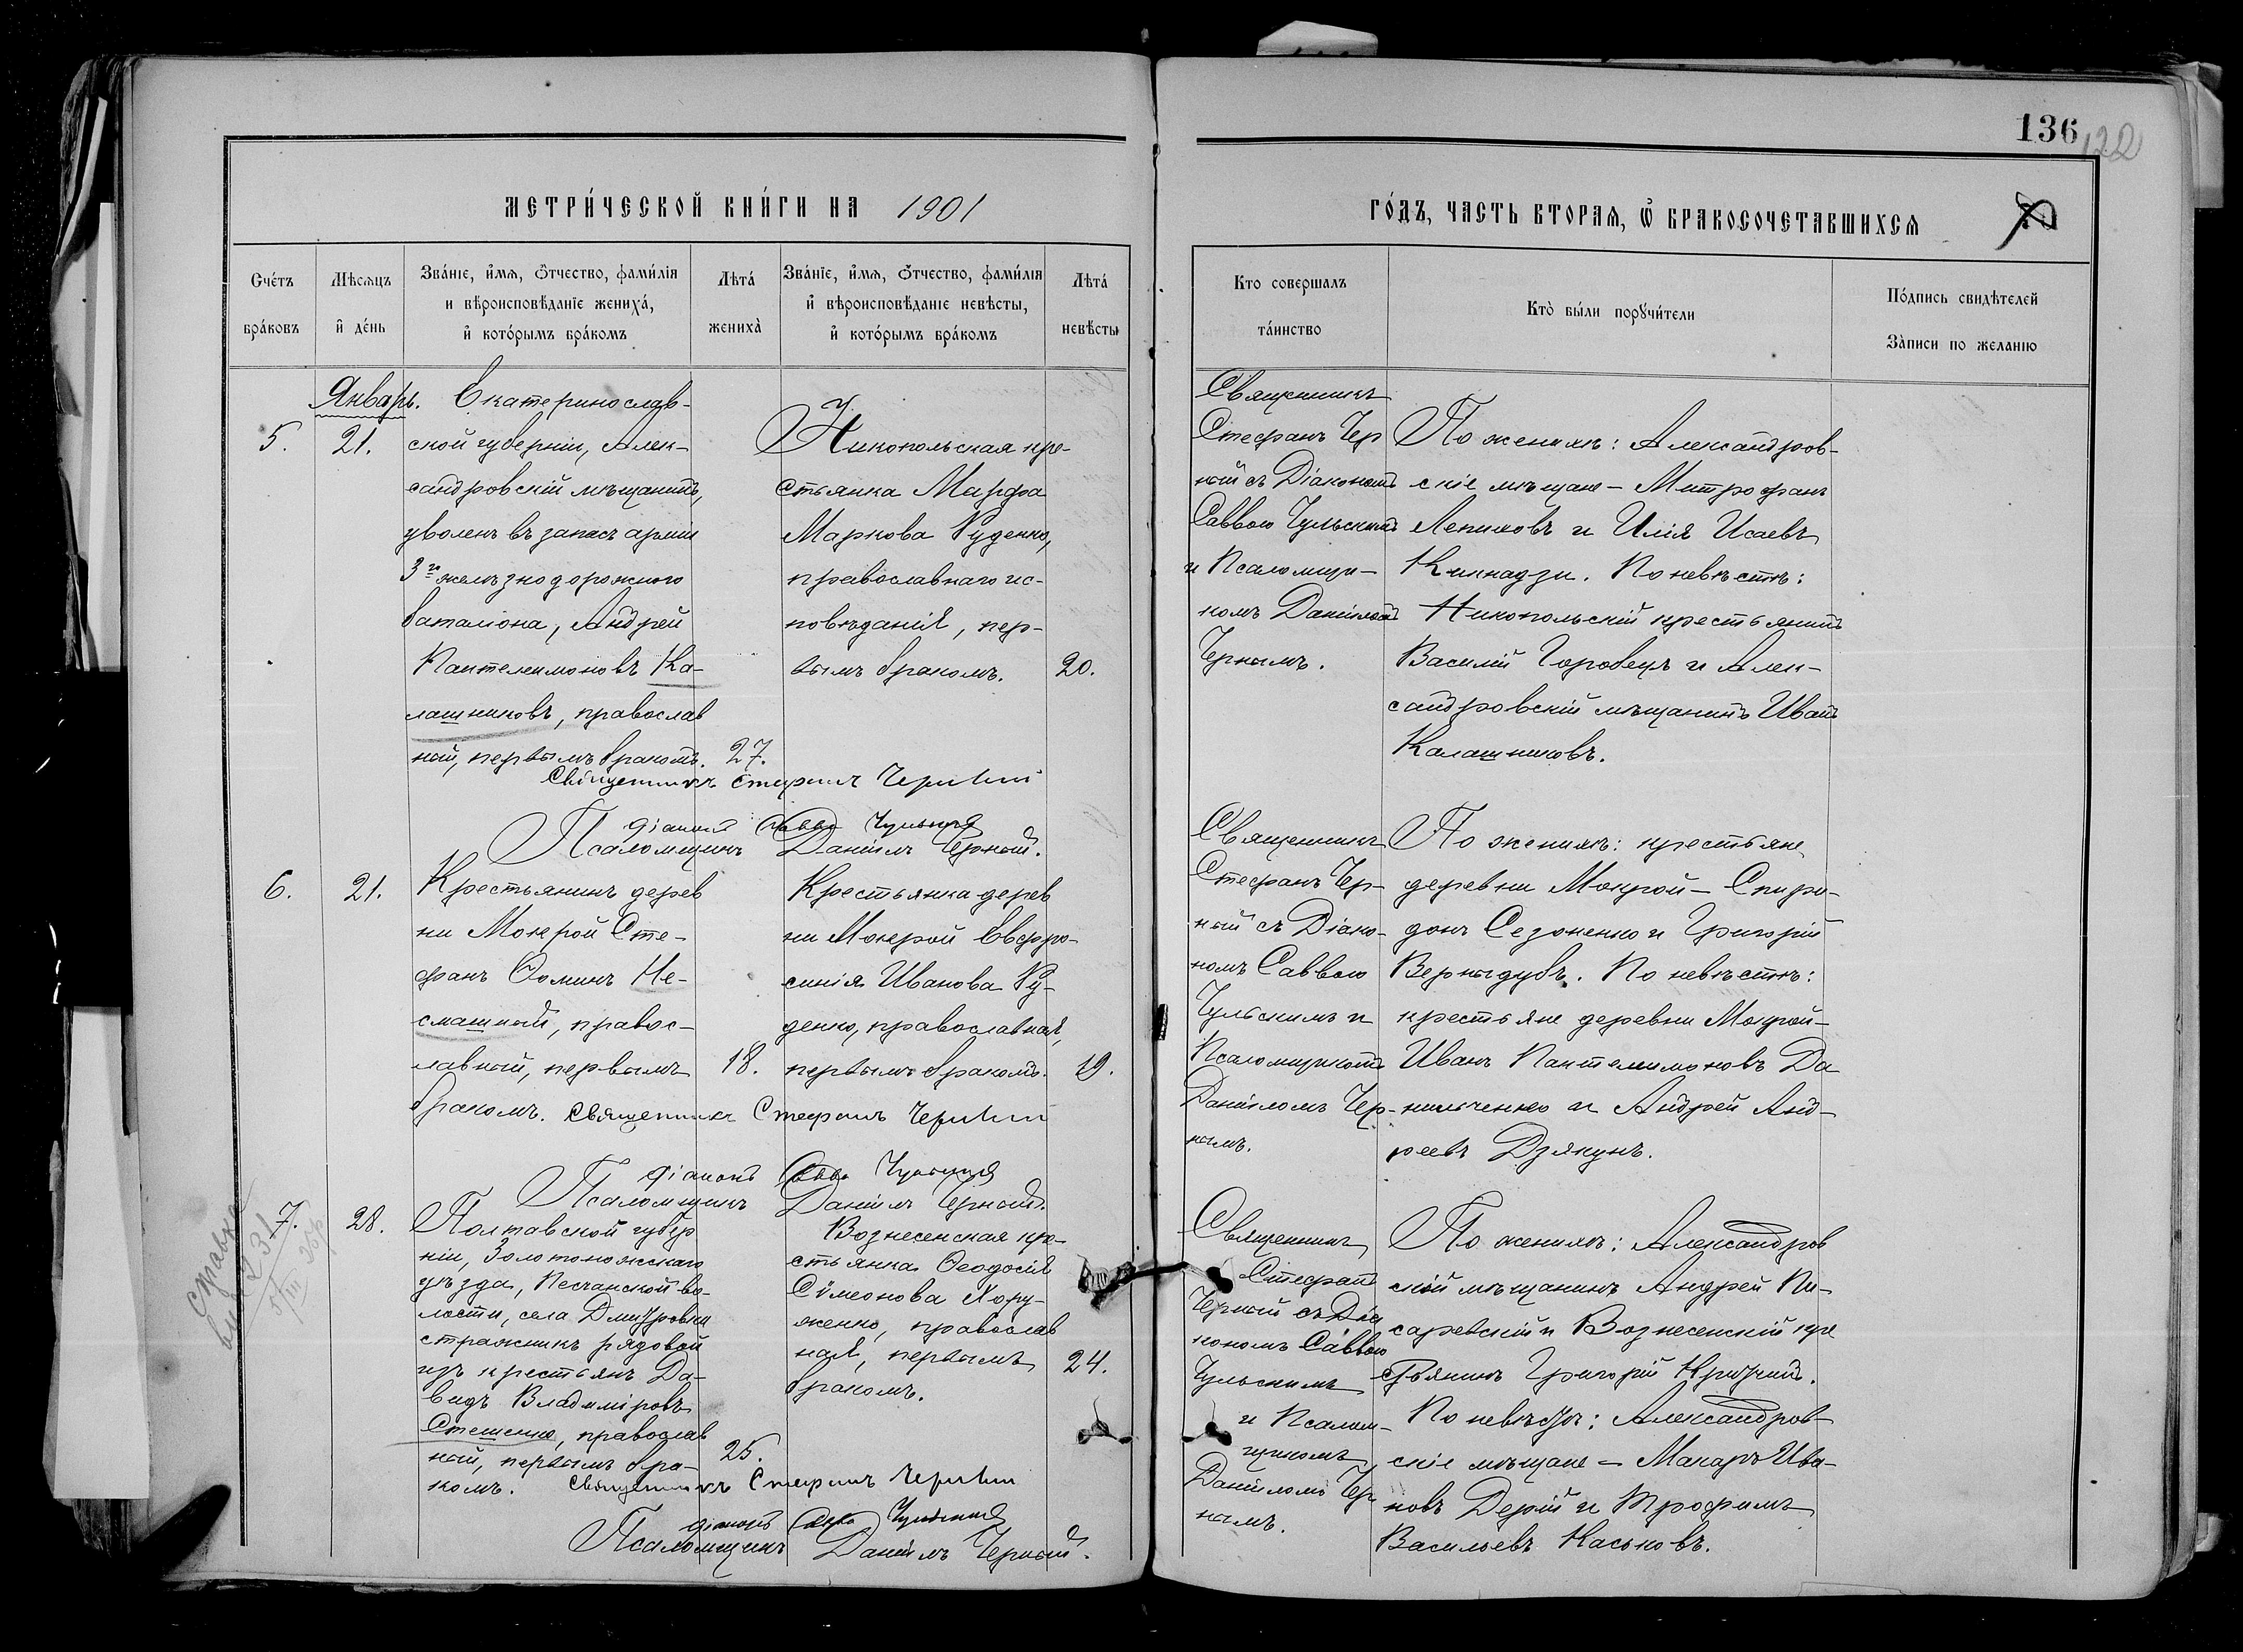 136
122
МЕТРИ́ЧЕСКОЙ КНИ́ГИ НА 1901
ГО́ДЪ, ЧАСТЬ ВТОРАѦ, Ѡ БРАКОСОЧЕТАВШИХСѦ
Сче́тъ бра́ковъ
Мѣсѧцъ и де́нь
Зва́нїе, и́мѧ, ѻ́тчество, фами́лїѧ
и вѣроисповѣданїе жениха́,
и кото́рымъ бра́комъ
Лѣта́ жениха̀
Зва́нїе, и́мѧ, ѻ́тчество, фами́лїѧ
и вѣроисповѣданїе невѣсты,
и кото́рымъ бра́комъ
Лѣта́ невѣсты
Кто совершалъ
та́инство
Кто̀ бы́ли порꙋчи́тели
По́дпись свидѣтелей
За̀писи по желанїю
5.
Январь.
21.
Екатеринослав-
ской губерніи, Алек-
сандровскій мѣщанинъ,
уволен въ запасъ арміи
3го желѣзнодорожного
баталіона, Андрей
Пантелеимоновъ Ка-
лашниковъ, православ
ный, первымъ бракомъ.
27.
Никопольская кре-
стьянка Марфа
Маркова Руденко,
православнаго ис-
повѣданія, пер-
вымъ бракомъ.
20.
Священникъ
Стефанъ Чер
ный съ Діакономъ
Саввою Чульскимъ
и Псаломщи-
комъ Даніиломъ
Чернымъ.
По женихѣ: Александров-
скіе мѣщане - Митрофанъ
Лепиховъ и Илія Исаевъ
Кикнадзи. По невѣстѣ:
Никопольскій крестьянинъ
Василій Горобецъ и Алек-
сандровскій мѣщанинъ Иванъ
Калашниковъ.
Священникъ Стефанъ Черный
Діаконъ Савва Чульскій
Псаломщикъ Даніилъ Черный.
6.
21.
Крестьянинъ дерев
ни Мокрой Сте-
фанъ Ѳоминъ Не-
смашный, правос-
лавный, первымъ
бракомъ.
18.
Крестьянка дерев
ни Мокрой Евфро-
синія Иванова Ру-
денко, православная,
первымъ бракомъ.
19.
Священникъ
Стефанъ Чер-
ный съ Діако-
номъ Саввою
Чульскимъ и
Псаломщикомъ
Даніиломъ Чер-
нымъ.
По женихѣ: крестьяне
деревни Мокрой - Спири-
донъ Сезоненко и Григорій
Вернидубъ. По невѣстѣ:
крестьяне деревни Мокрой -
Иванъ Пантелеимоновъ Да
нильченко и Андрей Анд-
реевъ Дзякунъ.
Священникъ Стефанъ Черный
Діаконъ Савва Чульскій
Псаломщикъ Даніилъ Черный.
Справка
7.
28.
Полтавской губер
ніи, Золотоножскаго
уѣзда, Песчанской во-
лости, села Дмитровки
стражникъ рядовой
изъ крестьянъ Да-
видъ Владиміровъ
Стешенко, православ
ный, первымъ бра-
комъ.
25.
Вознесенская кре-
стьянка Ѳеодосія
Сѵмеонова Хору-
женко, православ
ная, первымъ
бракомъ.
24.
Священникъ
Стефанъ
Черный съ Діа
кономъ Саввою
Чульскимъ
и Псалом-
щикомъ
Даніиломъ Чер
нымъ.
По женихѣ: Александров
скій мѣщанинъ Андрей Пи-
саревскій и Вознесенскій кре
стьянинъ Григорій Крутий.
По невѣстѣ: Александров-
скіе мѣщане - Макаръ Ива-
новъ Дерій и Трофимъ
Васильевъ Каськовъ.
Священникъ Стефанъ Черный
Діаконъ Савва Чульскій
Псаломщикъ Даніилъ Черный.